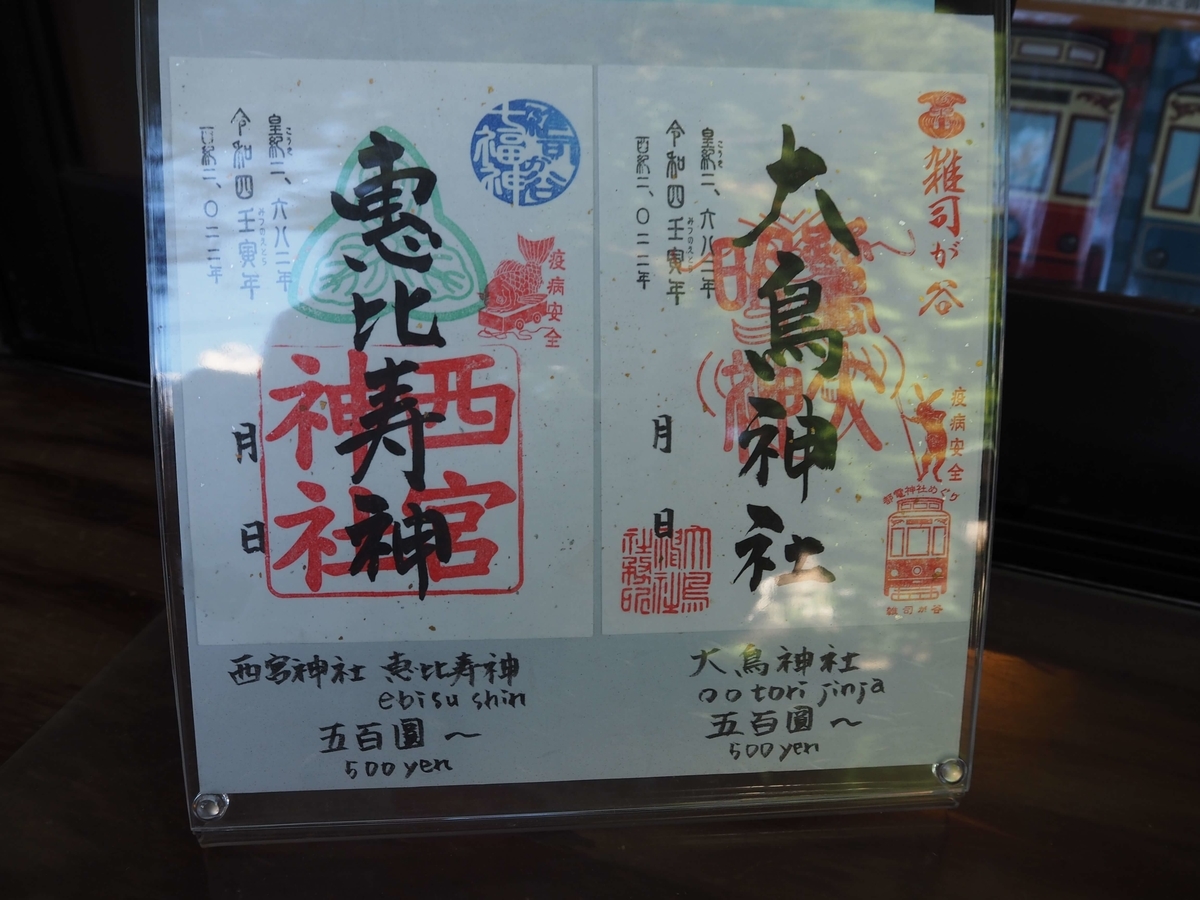 雑司が谷
疫病安全
都電神社めぐり
雑司が谷
大鳥神社
皇紀二、六八二年
こうき
令和四壬寅年
みづのえとら
西紀二、〇二二年
月
日
七福神
疫病安全
恵比寿神
西宮
神社
皇紀二、六八二年
こうき
令和四壬寅年
みづのえとら
西紀二、〇二二年
月
日
西宮神社 恵比寿神
ebisu shin
五百圓～
500yen
大鳥神社
ootori jinja
五百圓～
500yen